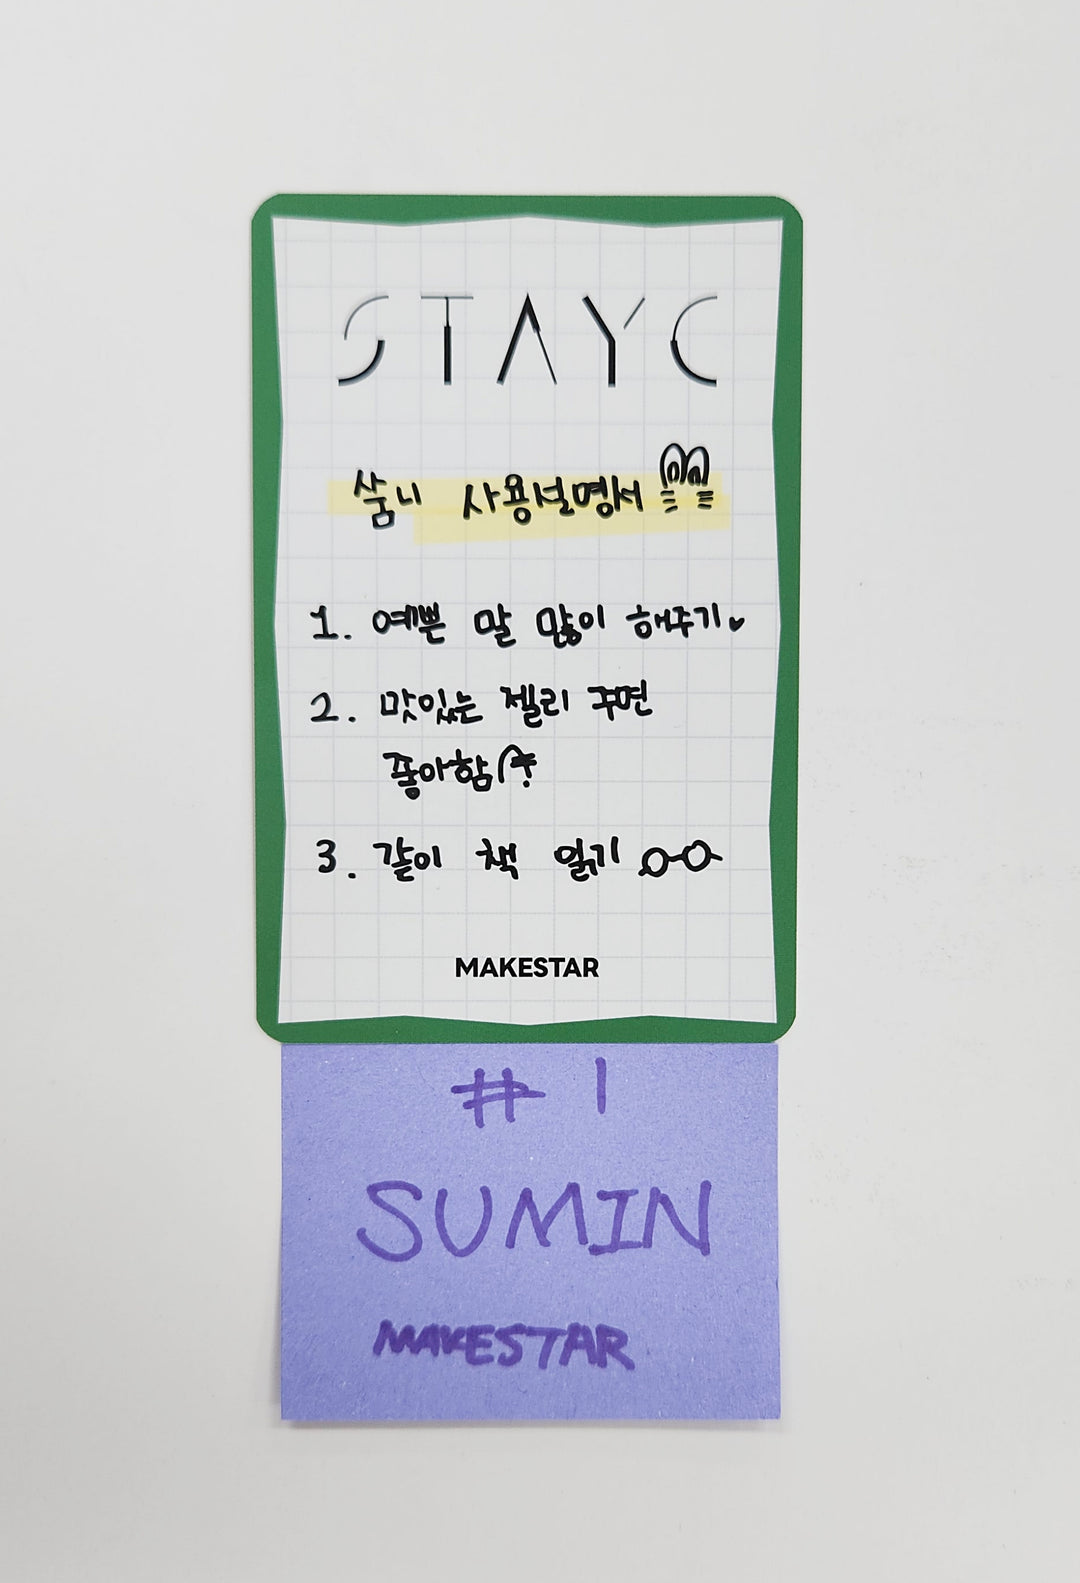 STAYC
숨니 사용설명서
1. 예쁜 말 많이 해주기♥
2. 맛있는 젤리 주면
좋아함
3. 같이 책 읽기
MAKESTAR
# 1
SUMIN
MAKESTAR